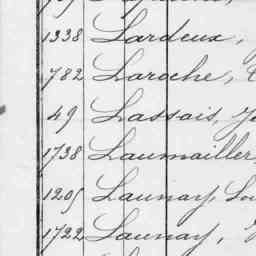 1338 Lardeux,
782 Laroche,
49 Lassais,
1738 Laumailler,
1205 Launay,
1722 Launay,